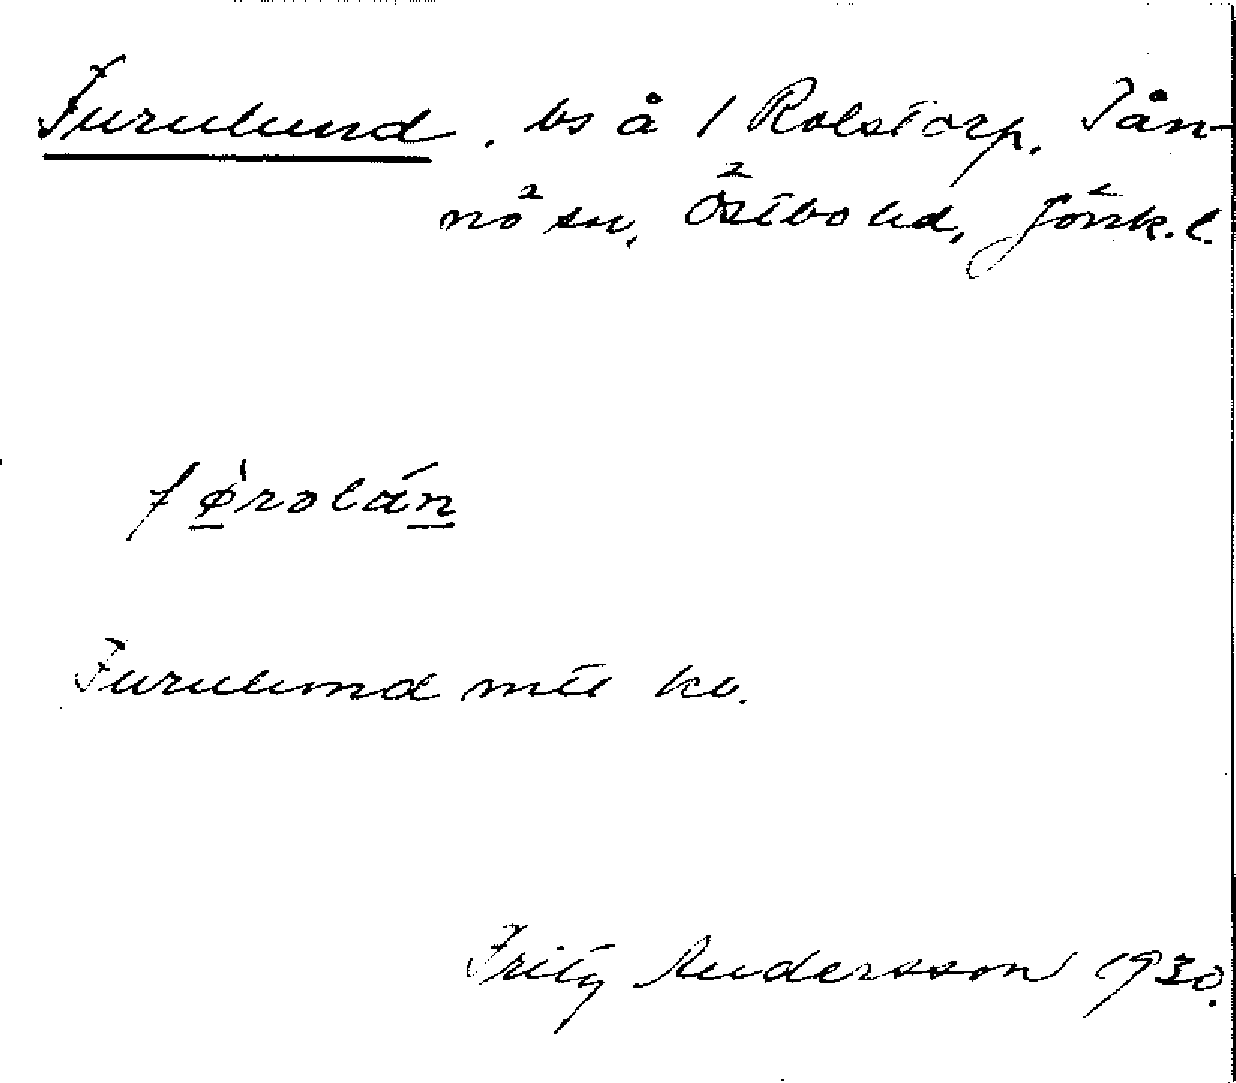 Furulund. bs å 1 Rolstorp, Tån-
nö sn, Östbo hd, Jönk. l.
Furulund mtl kv.
Fritz Andersson 1930.